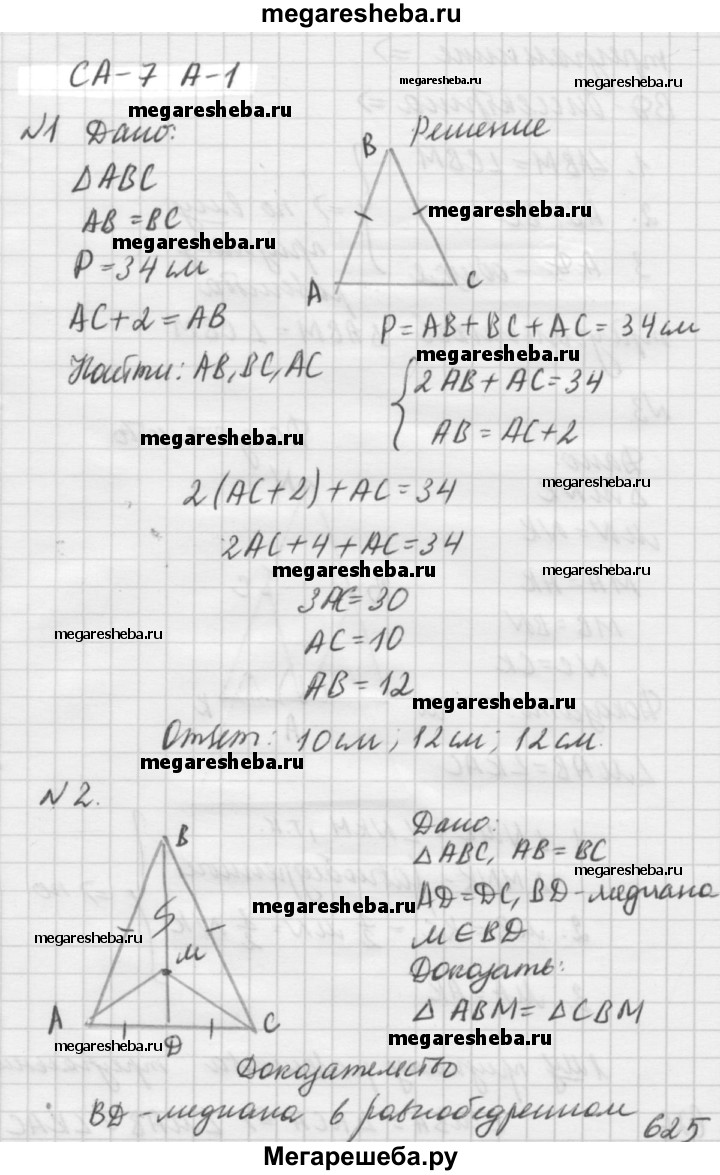 megaresheba.ru
СА-7 А-1
megaresheba.ru
megaresheba.ru
megaresheba.ru
№1 Дано:
Решение
ΔABC
AB = BC
megaresheba.ru
megaresheba.ru
P = 34 см
AC+2 = AB
Найти: AB, BC, AC
B
A
C
P = AB + BC + AC = 34 см
megaresheba.ru
2AB + AC = 34
AB = AC+2
megaresheba.ru
2(AC+2) + AC = 34
megaresheba.ru
2AC + 4 + AC = 34
megaresheba.ru
megaresheba.ru
3AC = 30
megaresheba.ru
AC = 10
AB = 12
megaresheba.ru
Ответ: 10 см; 12 см; 12 см.
megaresheba.ru
megaresheba.ru
№2.
B
M
A
D
C
Дано:
ΔABC, AB = BC
megaresheba.ru
AD = DC, BD - медиана
megaresheba.ru
megaresheba.ru
M∈BD
Доказать:
megaresheba.ru
Δ ABM = ΔCBM
megaresheba.ru
megaresheba.ru
Доказательство
BD - медиана в равнобедренном
625
Мегарешеба.ру